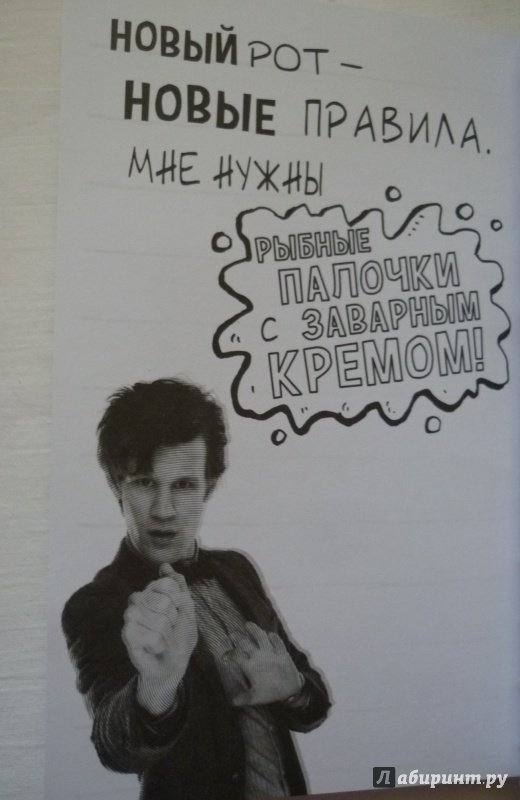 НОВЫЙ РОТ –
НОВЫЕ ПРАВИЛА.
МНЕ НУЖНЫ
РЫБНЫЕ
ПАЛОЧКИ
С ЗАВАРНЫМ
КРЕМОМ!
Лабиринт.ру